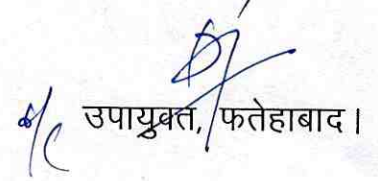 उपायुक्त, फतेहाबाद।